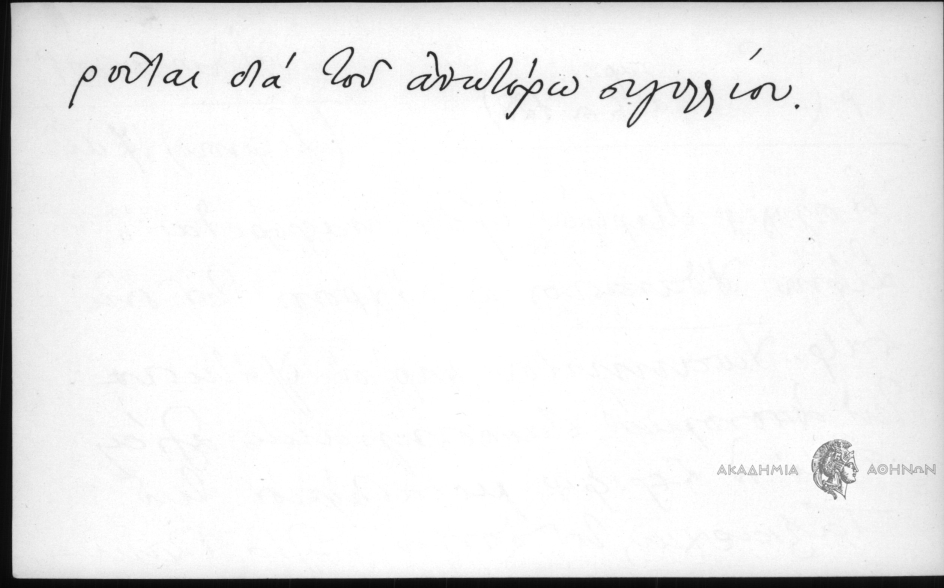 ροῦται διά τοῦ ἀνωτέρω σιγιλλίου.
ΑΚΑΔΗΜΙΑ ΑΘΗΝΩΝ